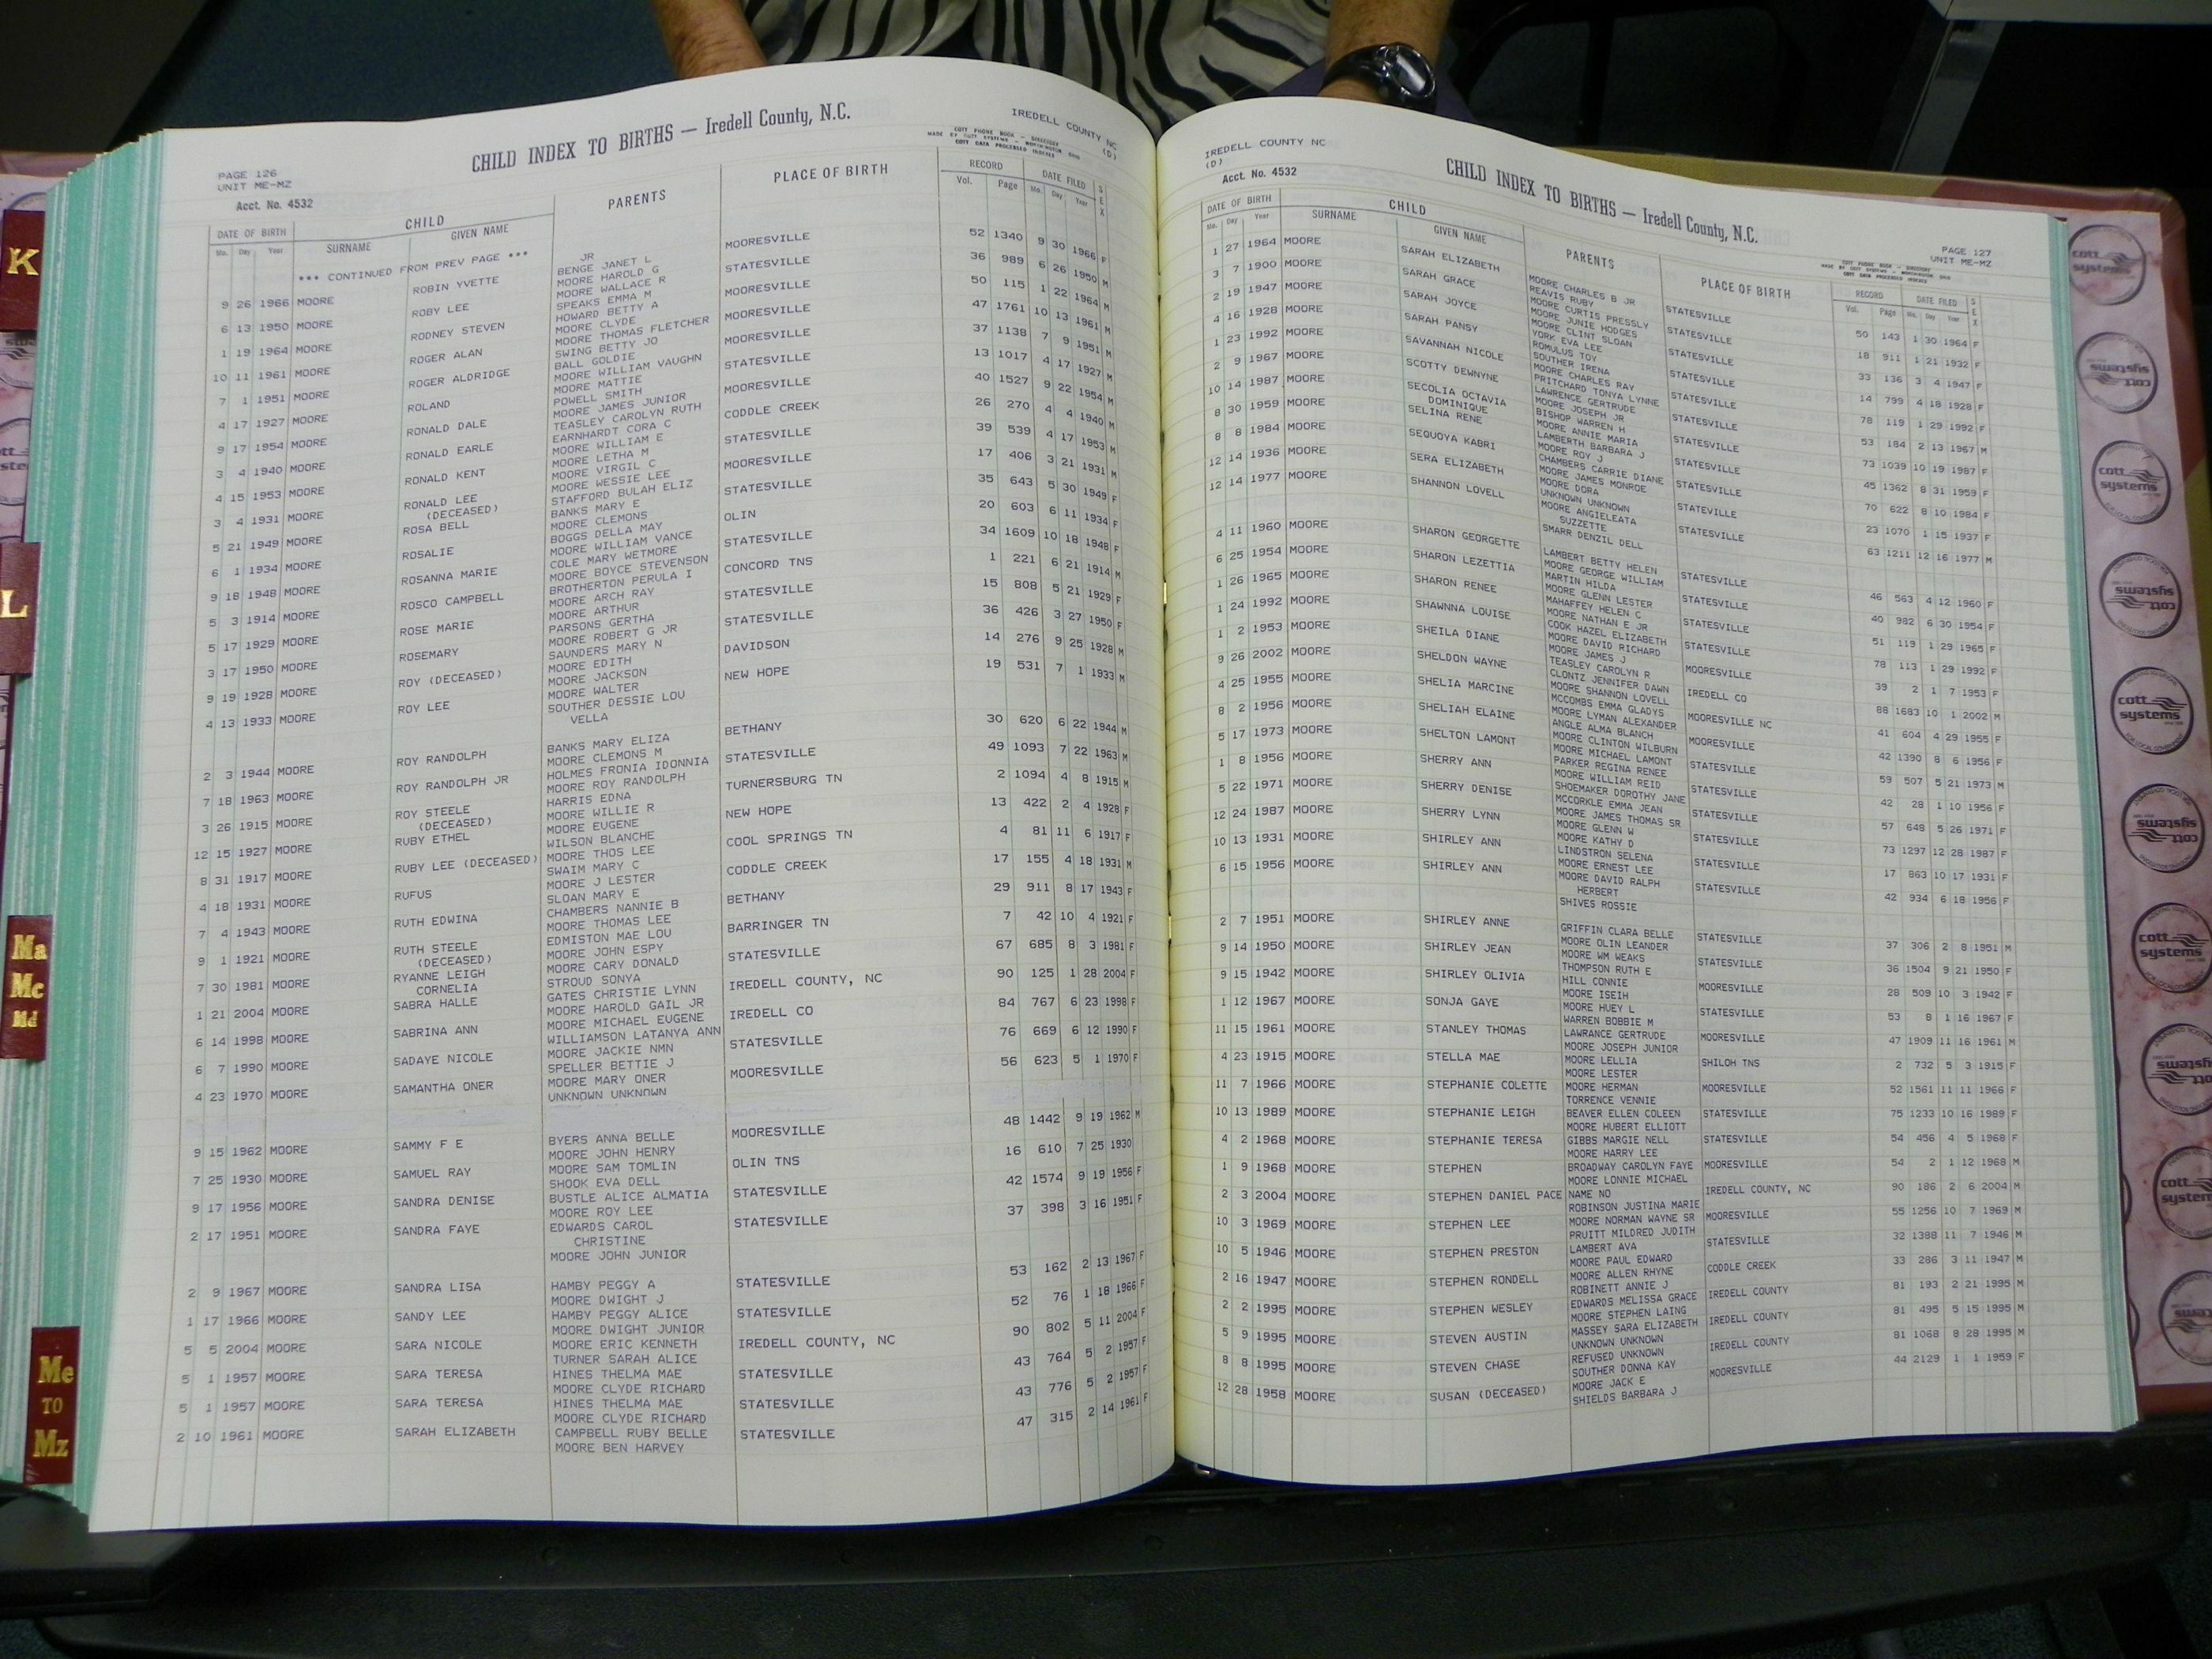 IREDELL COUNTY NC
(D)
CHILD INDEX TO BIRTHS — Iredell County, N.C.
COTT PHONE BOOK - DIRECTORY
MADE BY COTT SYSTEMS - WORTHINGTON, OHIO
COTT DATA PROCESSED INDEXES
PAGE 126
UNIT ME-MZ
Acct. No. 4532
DATE OF BIRTH CHILD PARENTS PLACE OF BIRTH RECORD DATE FILED SEX
Mo. Day Year SURNAME GIVEN NAME Vol. Page Mo. Day Year
*** CONTINUED FROM PREV PAGE *** JR
9 26 1966 MOORE ROBIN YVETTE BENGE JANET L MOORESVILLE 52 1340 9 30 1966 F
MOORE HAROLD G
6 13 1950 MOORE ROBY LEE MOORE WALLACE R STATESVILLE 36 989 6 26 1950 M
SPEAKS EMMA M
1 19 1964 MOORE RODNEY STEVEN HOWARD BETTY A MOORESVILLE 50 115 1 22 1964 M
MOORE CLYDE
10 11 1961 MOORE ROGER ALAN MOORE THOMAS FLETCHER MOORESVILLE 47 1761 10 13 1961 M
SWING BETTY JO
7 1 1951 MOORE ROGER ALDRIDGE BALL GOLDIE MOORESVILLE 37 1138 7 9 1951 M
MOORE WILLIAM VAUGHN
4 17 1927 MOORE ROLAND MOORE MATTIE STATESVILLE 13 1017 4 17 1927 M
POWELL SMITH
9 17 1954 MOORE RONALD DALE MOORE JAMES JUNIOR MOORESVILLE 40 1527 9 22 1954 M
TEASLEY CAROLYN RUTH
3 4 1940 MOORE RONALD EARLE EARNHARDT CORA C CODDLE CREEK 26 270 4 4 1940 M
MOORE WILLIAM E
4 15 1953 MOORE RONALD KENT MOORE LETHA M STATESVILLE 39 539 4 17 1953 M
MOORE VIRGIL C
3 4 1931 MOORE RONALD LEE MOORE WESSIE LEE MOORESVILLE 17 406 3 21 1931 M
(DECEASED) STAFFORD BULAH ELIZ
5 21 1949 MOORE ROSA BELL BANKS MARY E STATESVILLE 35 643 5 30 1949 F
MOORE CLEMONS
6 1 1934 MOORE ROSALIE BOGGS DELLA MAY OLIN 20 603 6 11 1934 F
MOORE WILLIAM VANCE
9 18 1948 MOORE ROSANNA MARIE COLE MARY WETMORE STATESVILLE 34 1609 10 18 1948 F
MOORE BOYCE STEVENSON
5 3 1914 MOORE ROSCO CAMPBELL BROTHERTON PERULA I CONCORD TNS 1 221 6 21 1914 M
MOORE ARCH RAY
5 17 1929 MOORE ROSE MARIE MOORE ARTHUR STATESVILLE 15 808 5 21 1929 F
PARSONS GERTHA
3 17 1950 MOORE ROSEMARY MOORE ROBERT G JR STATESVILLE 36 426 3 27 1950 F
SAUNDERS MARY N
9 19 1928 MOORE ROY (DECEASED) MOORE EDITH DAVIDSON 14 276 9 25 1928 M
MOORE JACKSON
4 13 1933 MOORE ROY LEE MOORE WALTER NEW HOPE 19 531 7 1 1933 M
SOUTHER DESSIE LOU
VELLA
2 3 1944 MOORE ROY RANDOLPH BANKS MARY ELIZA BETHANY 30 620 6 22 1944 M
MOORE CLEMONS M
7 18 1963 MOORE ROY RANDOLPH JR HOLMES FRONIA IDONNIA STATESVILLE 49 1093 7 22 1963 M
MOORE ROY RANDOLPH
3 26 1915 MOORE ROY STEELE HARRIS EDNA TURNERSBURG TN 2 1094 4 8 1915 M
(DECEASED) MOORE WILLIE R
12 15 1927 MOORE RUBY ETHEL MOORE EUGENE NEW HOPE 13 422 2 4 1928 F
WILSON BLANCHE
8 31 1917 MOORE RUBY LEE (DECEASED) MOORE THOS LEE COOL SPRINGS TN 4 81 11 6 1917 F
SWAIM MARY C
4 18 1931 MOORE RUFUS MOORE J LESTER CODDLE CREEK 17 155 4 18 1931 M
SLOAN MARY E
7 4 1943 MOORE RUTH EDWINA CHAMBERS NANNIE B BETHANY 29 911 8 17 1943 F
MOORE THOMAS LEE
9 1 1921 MOORE RUTH STEELE EDMISTON MAE LOU BARRINGER TN 7 42 10 4 1921 F
(DECEASED) MOORE JOHN ESPY
7 30 1981 MOORE RYANNE LEIGH MOORE CARY DONALD STATESVILLE 67 685 8 3 1981 F
CORNELIA STROUD SONYA
1 21 2004 MOORE SABRA HALLE GATES CHRISTIE LYNN IREDELL COUNTY, NC 90 125 1 28 2004 F
MOORE HAROLD GAIL JR
6 14 1998 MOORE SABRINA ANN MOORE MICHAEL EUGENE IREDELL CO 84 767 6 23 1998 F
WILLIAMSON LATANYA ANN
6 7 1990 MOORE SADAYE NICOLE MOORE JACKIE NMN STATESVILLE 76 669 6 12 1990 F
SPELLER BETTIE J
4 23 1970 MOORE SAMANTHA ONER MOORE MARY ONER MOORESVILLE 56 623 5 1 1970 F
UNKNOWN UNKNOWN
9 15 1962 MOORE SAMMY F E BYERS ANNA BELLE MOORESVILLE 48 1442 9 19 1962 M
MOORE JOHN HENRY
7 25 1930 MOORE SAMUEL RAY MOORE SAM TOMLIN OLIN TNS 16 610 7 25 1930
SHOOK EVA DELL
9 17 1956 MOORE SANDRA DENISE BUSTLE ALICE ALMATIA STATESVILLE 42 1574 9 19 1956 F
MOORE ROY LEE
2 17 1951 MOORE SANDRA FAYE EDWARDS CAROL STATESVILLE 37 398 3 16 1951 F
CHRISTINE
MOORE JOHN JUNIOR
2 9 1967 MOORE SANDRA LISA HAMBY PEGGY A STATESVILLE 53 162 2 13 1967 F
MOORE DWIGHT J
1 17 1966 MOORE SANDY LEE HAMBY PEGGY ALICE STATESVILLE 52 76 1 18 1966 F
MOORE DWIGHT JUNIOR
5 5 2004 MOORE SARA NICOLE MOORE ERIC KENNETH IREDELL COUNTY, NC 90 802 5 11 2004 F
TURNER SARAH ALICE
5 1 1957 MOORE SARA TERESA HINES THELMA MAE STATESVILLE 43 764 5 2 1957 F
MOORE CLYDE RICHARD
5 1 1957 MOORE SARA TERESA HINES THELMA MAE STATESVILLE 43 776 5 2 1957 F
MOORE CLYDE RICHARD
2 10 1961 MOORE SARAH ELIZABETH CAMPBELL RUBY BELLE STATESVILLE 47 315 2 14 1961 F
MOORE BEN HARVEY
IREDELL COUNTY NC
(D)
Acct. No. 4532
CHILD INDEX TO BIRTHS — Iredell County, N.C.
PAGE 127
UNIT ME-MZ
COTT PHONE BOOK - DIRECTORY
MADE BY COTT SYSTEMS - WORTHINGTON, OHIO
COTT DATA PROCESSED INDEXES
DATE OF BIRTH CHILD PARENTS PLACE OF BIRTH RECORD DATE FILED SEX
Mo. Day Year SURNAME GIVEN NAME Vol. Page Mo. Day Year
1 27 1964 MOORE SARAH ELIZABETH MOORE CHARLES B JR STATESVILLE 50 143 1 30 1964 F
REAVIS RUBY
3 7 1900 MOORE SARAH GRACE MOORE CURTIS PRESSLY STATESVILLE 18 911 1 21 1932 F
MOORE JUNIE HODGES
2 19 1947 MOORE SARAH JOYCE MOORE CLINT SLOAN STATESVILLE 33 136 3 4 1947 F
YORK EVA LEE
4 16 1928 MOORE SARAH PANSY ROMULUS TOY STATESVILLE 14 799 4 18 1928 F
SOUTHER IRENA
1 23 1992 MOORE SAVANNAH NICOLE MOORE CHARLES RAY STATESVILLE 78 119 1 29 1992 F
PRITCHARD TONYA LYNNE
2 9 1967 MOORE SCOTTY DEWNYNE LAWRENCE GERTRUDE STATESVILLE 53 184 2 13 1967 M
MOORE JOSEPH JR
10 14 1987 MOORE SECOLIA OCTAVIA BISHOP WARREN H STATESVILLE 73 1039 10 19 1987 F
DOMINIQUE MOORE ANNIE MARIA
8 30 1959 MOORE SELINA RENE LAMBERTH BARBARA J STATESVILLE 45 1362 8 31 1959 F
MOORE ROY J
8 8 1984 MOORE SEQUOYA KABRI CHAMBERS CARRIE DIANE STATESVILLE 70 622 8 10 1984 F
MOORE JAMES MONROE
12 14 1936 MOORE SERA ELIZABETH MOORE DORA STATESVILLE 23 1070 1 15 1937 F
UNKNOWN UNKNOWN
12 14 1977 MOORE SHANNON LOVELL MOORE ANGIELEATA STATESVILLE 63 1211 12 16 1977 M
SUZZETTE
SMARR DENZIL DELL
4 11 1960 MOORE SHARON GEORGETTE LAMBERT BETTY HELEN STATESVILLE 46 563 4 12 1960 F
MOORE GEORGE WILLIAM
6 25 1954 MOORE SHARON LEZETTIA MARTIN HILDA STATESVILLE 40 982 6 30 1954 F
MOORE GLENN LESTER
1 26 1965 MOORE SHARON RENEE MAHAFFEY HELEN C STATESVILLE 51 119 1 29 1965 F
MOORE NATHAN E JR
1 24 1992 MOORE SHAWNNA LOUISE COOK HAZEL ELIZABETH STATESVILLE 78 113 1 29 1992 F
MOORE DAVID RICHARD
1 2 1953 MOORE SHEILA DIANE MOORE JAMES J MOORESVILLE 39 2 1 7 1953 F
TEASLEY CAROLYN R
9 26 2002 MOORE SHELDON WAYNE CLONTZ JENNIFER DAWN IREDELL CO 88 1683 10 1 2002 M
MOORE SHANNON LOVELL
4 25 1955 MOORE SHELIA MARCINE MCCOMBS EMMA GLADYS MOORESVILLE NC 41 604 4 29 1955 F
MOORE LYMAN ALEXANDER
8 2 1956 MOORE SHELIAH ELAINE ANGLE ALMA BLANCH MOORESVILLE 42 1390 8 6 1956 F
MOORE CLINTON WILBURN
5 17 1973 MOORE SHELTON LAMONT MOORE MICHAEL LAMONT STATESVILLE 59 507 5 21 1973 M
PARKER REGINA RENEE
1 8 1956 MOORE SHERRY ANN MOORE WILLIAM REID STATESVILLE 42 28 1 10 1956 F
SHOEMAKER DOROTHY JANE
5 22 1971 MOORE SHERRY DENISE MCCORKLE EMMA JEAN STATESVILLE 57 648 5 26 1971 F
MOORE JAMES THOMAS SR
12 24 1987 MOORE SHERRY LYNN MOORE GLENN W STATESVILLE 73 1297 12 28 1987 F
MOORE KATHY D
10 13 1931 MOORE SHIRLEY ANN LINDSTRON SELENA STATESVILLE 17 863 10 17 1931 F
MOORE ERNEST LEE
6 15 1956 MOORE SHIRLEY ANN MOORE DAVID RALPH STATESVILLE 42 934 6 18 1956 F
HERBERT
SHIVES ROSSIE
2 7 1951 MOORE SHIRLEY ANNE GRIFFIN CLARA BELLE STATESVILLE 37 306 2 8 1951 M
MOORE OLIN LEANDER
9 14 1950 MOORE SHIRLEY JEAN MOORE WM WEAKS STATESVILLE 36 1504 9 21 1950 F
THOMPSON RUTH E
9 15 1942 MOORE SHIRLEY OLIVIA HILL CONNIE MOORESVILLE 28 509 10 3 1942 F
MOORE ISEIH
1 12 1967 MOORE SONJA GAYE MOORE HUEY L STATESVILLE 53 8 1 16 1967 F
WARREN BOBBIE M
11 15 1961 MOORE STANLEY THOMAS LAWRANCE GERTRUDE MOORESVILLE 47 1909 11 16 1961 M
MOORE JOSEPH JUNIOR
4 23 1915 MOORE STELLA MAE MOORE LELLIA SHILOH TNS 2 732 5 3 1915 F
MOORE LESTER
11 7 1966 MOORE STEPHANIE COLETTE MOORE HERMAN MOORESVILLE 52 1561 11 11 1966 F
TORRENCE VENNIE
10 13 1989 MOORE STEPHANIE LEIGH BEAVER ELLEN COLEEN STATESVILLE 75 1233 10 16 1989 F
MOORE HUBERT ELLIOTT
4 2 1968 MOORE STEPHANIE TERESA GIBBS MARGIE NELL STATESVILLE 54 456 4 5 1968 F
MOORE HARRY LEE
1 9 1968 MOORE STEPHEN BROADWAY CAROLYN FAYE MOORESVILLE 54 2 1 12 1968 M
MOORE LONNIE MICHAEL
2 3 2004 MOORE STEPHEN DANIEL PACE NAME NO IREDELL COUNTY, NC 90 186 2 6 2004 M
ROBINSON JUSTINA MARIE
10 3 1969 MOORE STEPHEN LEE MOORE NORMAN WAYNE SR MOORESVILLE 55 1256 10 7 1969 M
PRUITT MILDRED JUDITH
10 5 1946 MOORE STEPHEN PRESTON LAMBERT AVA STATESVILLE 32 1388 11 7 1946 M
MOORE PAUL EDWARD
2 16 1947 MOORE STEPHEN RONDELL MOORE ALLEN RHYNE CODDLE CREEK 33 286 3 11 1947 M
ROBINETT ANNIE J
2 2 1995 MOORE STEPHEN WESLEY EDWARDS MELISSA GRACE IREDELL COUNTY 81 193 2 21 1995 M
MOORE STEPHEN LAING
5 9 1995 MOORE STEVEN AUSTIN MASSEY SARA ELIZABETH IREDELL COUNTY 81 495 5 15 1995 M
UNKNOWN UNKNOWN
8 8 1995 MOORE STEVEN CHASE REFUSED UNKNOWN IREDELL COUNTY 81 1068 8 28 1995 M
SOUTHER DONNA KAY
12 28 1958 MOORE SUSAN (DECEASED) MOORE JACK E MOORESVILLE 44 2129 1 1 1959 F
SHIELDS BARBARA J
K
L
Ma
Mc
Md
Me
TO
Mz
cott
systems
cott
systems
cott
systems
cott
systems
cott
systems